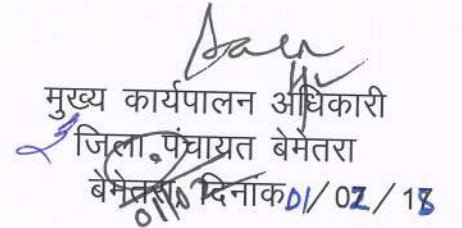 मुख्य कार्यपालन अधिकारी
जिला पंचायत बेमेतरा
बेमेतरा, दिनाक 01/02/18